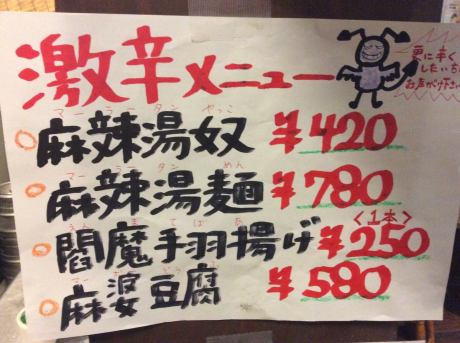 激辛メニュー
更に辛く
したい
お声が下さい
マーラータン やっこ
麻辣湯奴 ¥420
マーラータン めん
麻辣湯麺 ¥780
えんまてばあ
閻魔手羽揚げ ¥250
<1本>
麻婆豆腐 ¥580